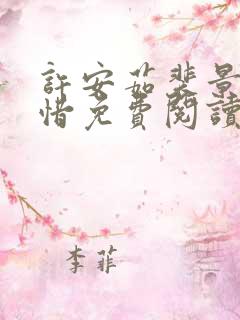 許安茹裴景
惜免費閱讀
李菲